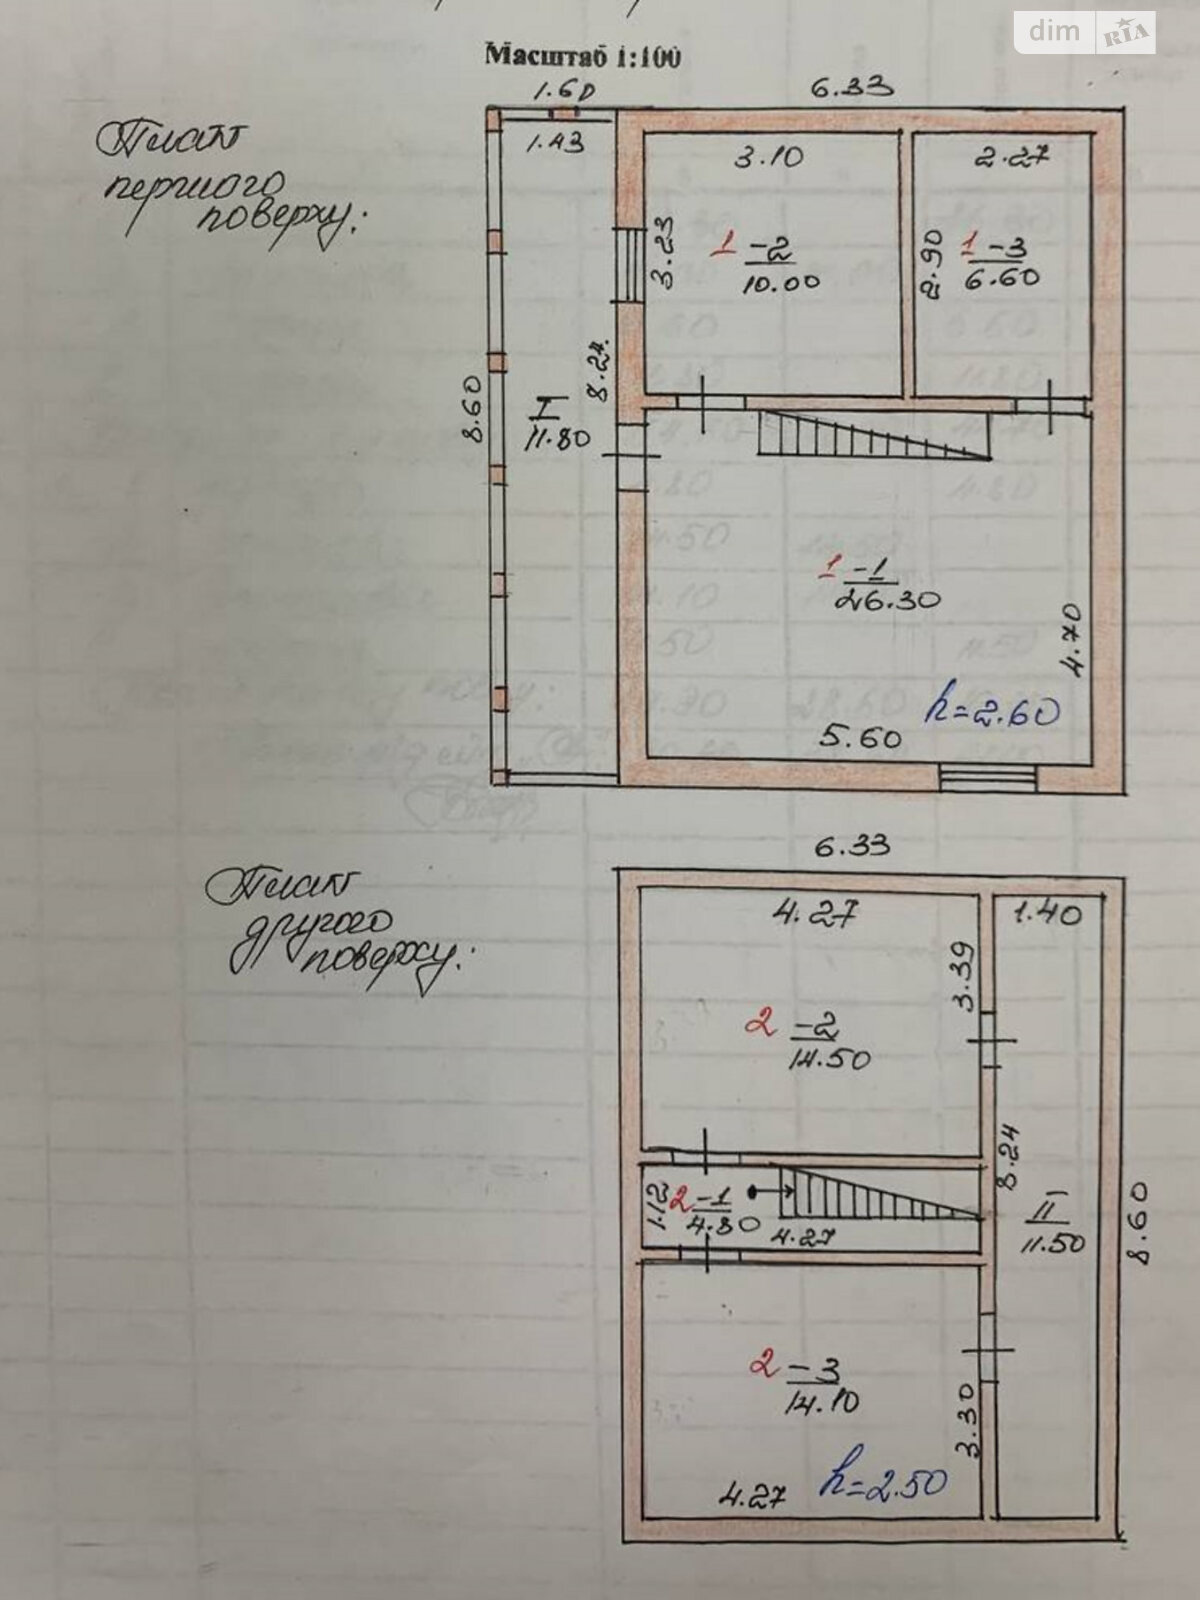 dim RIA
Масштаб 1:100
1.60
6.33
План
першого
поверху:
1.43
3.10
2.27
3.23
1 -2
10.00
2.90
1 -3
6.60
8.24.
8.60
I
11.80
1 -1
26.30
4.70
h=2.60
5.60
6.33
План
другого
поверху:
4.27
1.40
3.39
2 -2
14.50
8.24
1.12
2 -1
4.80
4.27
II
11.50
8.60
2 -3
14.10
3.30
4.27
h=2.50